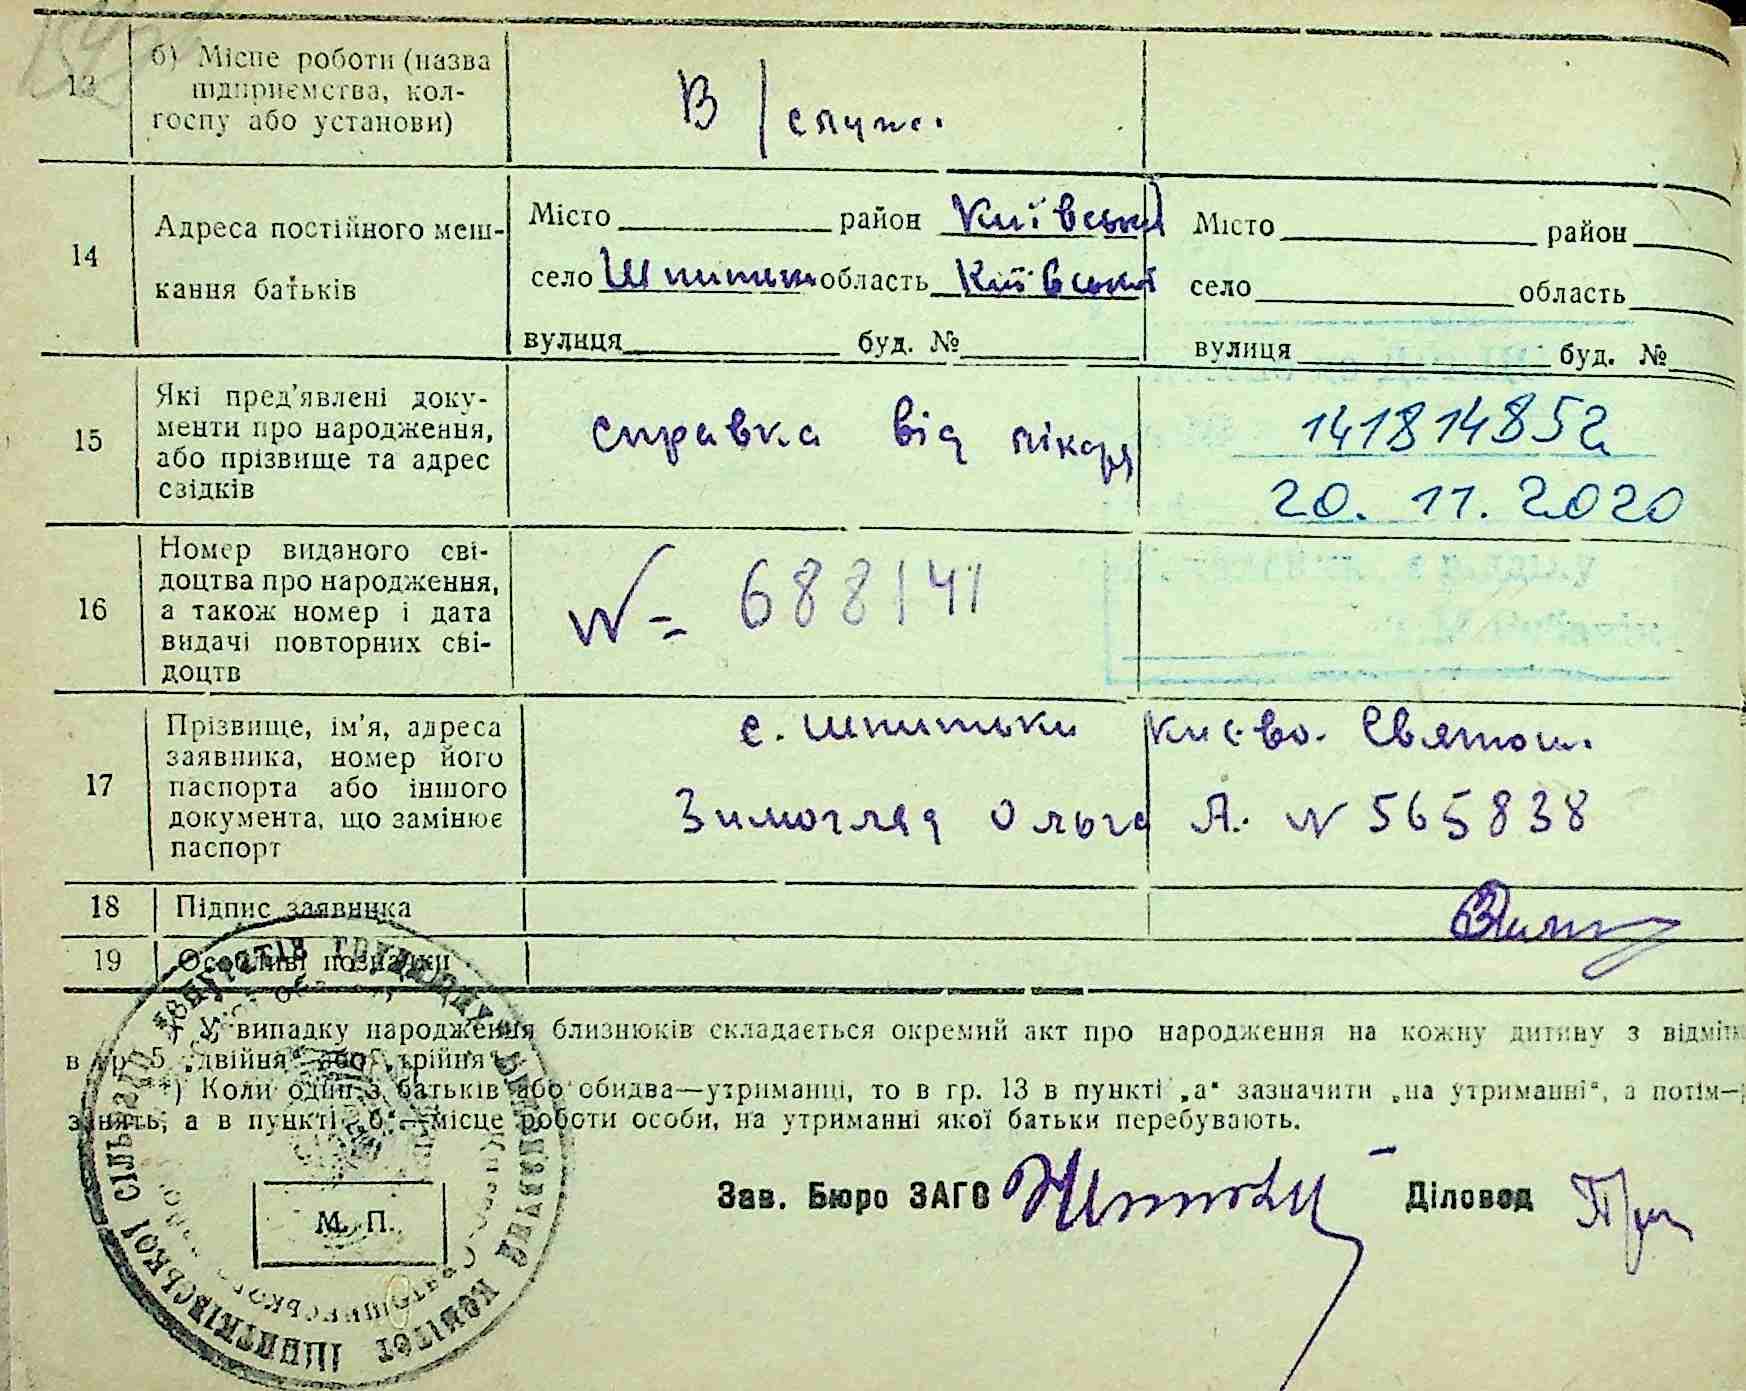 13
б) Місце роботи (назва
підприємства, кол-
госпу або установи)
В/служ.
14
Адреса постійного меш-
кання батьків
Місто район Київський
село Шпитьки область Київська
вулиця буд. №
Місто район
село область
вулиця буд. №
15
Які пред'явлені доку-
менти про народження,
або прізвище та адрес
свідків
справка від лікаря
141814852
20. 11. 2020
16
Номер виданого сві-
доцтва про народження,
а також номер і дата
видачі повторних сві-
доцтв
№ 688141
17
Прізвище, ім'я, адреса
заявника, номер його
паспорта або іншого
документа, що замінює
паспорт
с. Шпитьки Києво. Святош.
Зимогляд Ольга А. № 565838
18 Підпис заявника
19 Особливі позначки
У випадку народження близнюків складається окремий акт про народження на кожну дитину з відміт
в гр. 5 „двійня" або „трійня"
*) Коли один з батьків або обидва—утриманці, то в гр. 13 в пункті „а" зазначити „на утриманні", а потім—
занять, а в пункті „б"—місце роботи особи, на утриманні якої батьки перебувають.
Зав. Бюро ЗАГС Діловод
М. П.
Виконавчий комітет Шпитьківської сільської ради депутатів трудящих